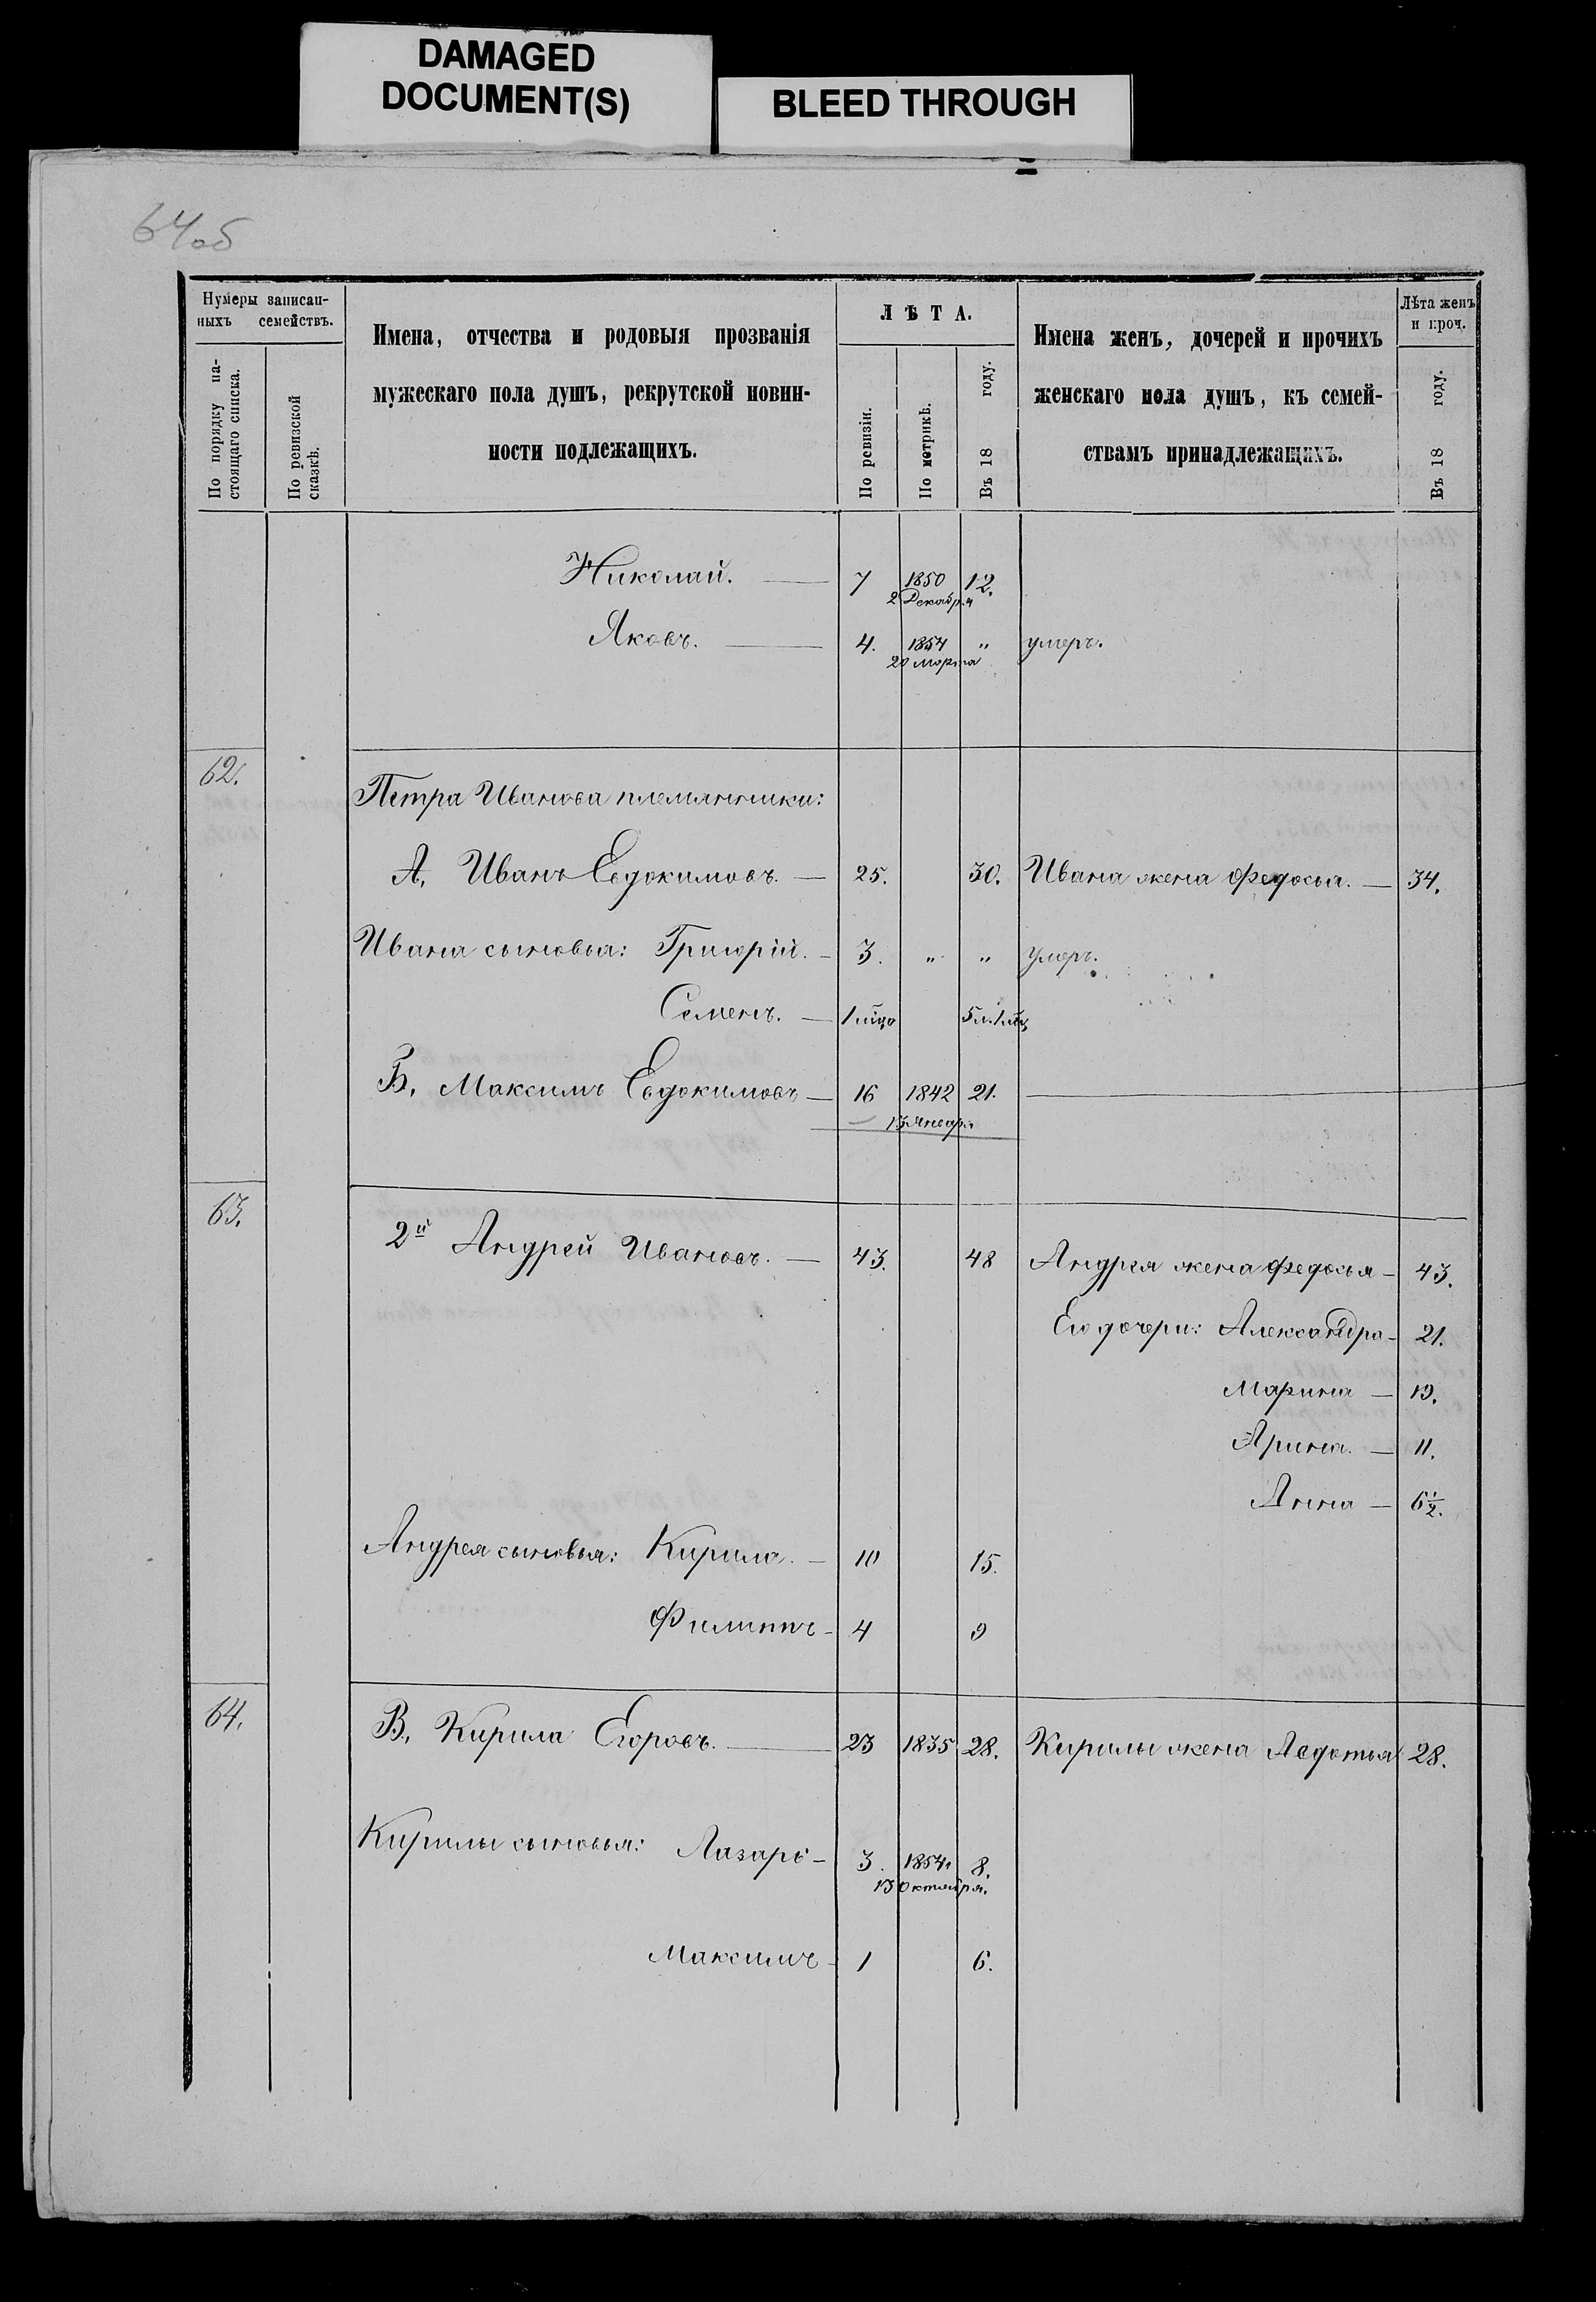 DAMAGED
DOCUMENT(S)
BLEED THROUGH
64об
Нумеры записан-
ныхъ семействъ.
По порядку на-
стоящаго списка.
По ревизской
сказкѣ.
Имена, отчества и родовыя прозванія
мужескаго пола душъ, рекрутской повин-
ности подлежащихъ.
ЛѢТА.
По ревизіи.
По метрикѣ.
Въ 18 году.
Имена женъ, дочерей и прочихъ
женскаго пола душъ, къ семей-
ствамъ принадлежащихъ.
Лѣта женъ
и проч.
Въ 18 году.
Николай. — 7 1850 12.
2 Декабря
Яковъ. — 4. 1854 " умеръ.
20 марта
62.
Петра Иванова племянники:
А, Иванъ Евдокимовъ. — 25. 30. Ивана жена Федосья. — 34.
Ивана сыновья: Григорій. — 3. " " умеръ.
Семенъ. — 1 мѣца 5 л. 1 мѣц
Б, Максимъ Евдокимовъ — 16 1842 21. —
13 Января
63.
2й Андрей Ивановъ. — 43. 48 Андрея жена Федосья — 43.
Его дочери: Александра — 21.
Марина — 19.
Арина. — 11.
Анна — 6½.
Андрея сыновья: Кирила. — 10 15.
Филиппъ — 4 9
64.
В, Кирила Егоровъ. — 23 1835 28. Кирилы жена Авдотья 28.
Кирилы сыновья: Лазарь — 3. 1854 8.
13 Октября.
Максимъ — 1 6.